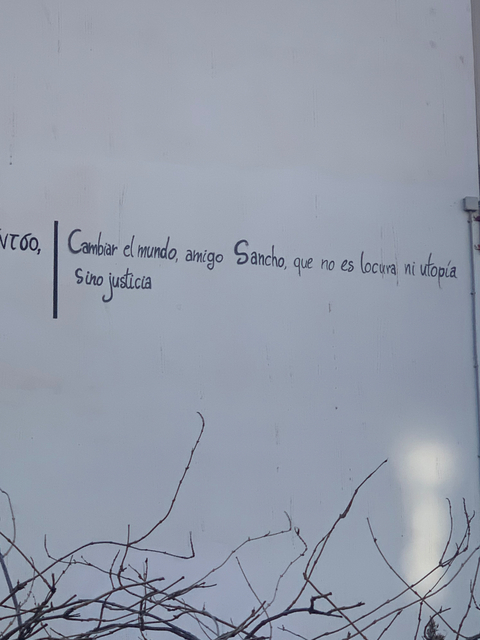 ντσο,
Cambiar el mundo, amigo Sancho, que no es locura ni utopía
sino justicia